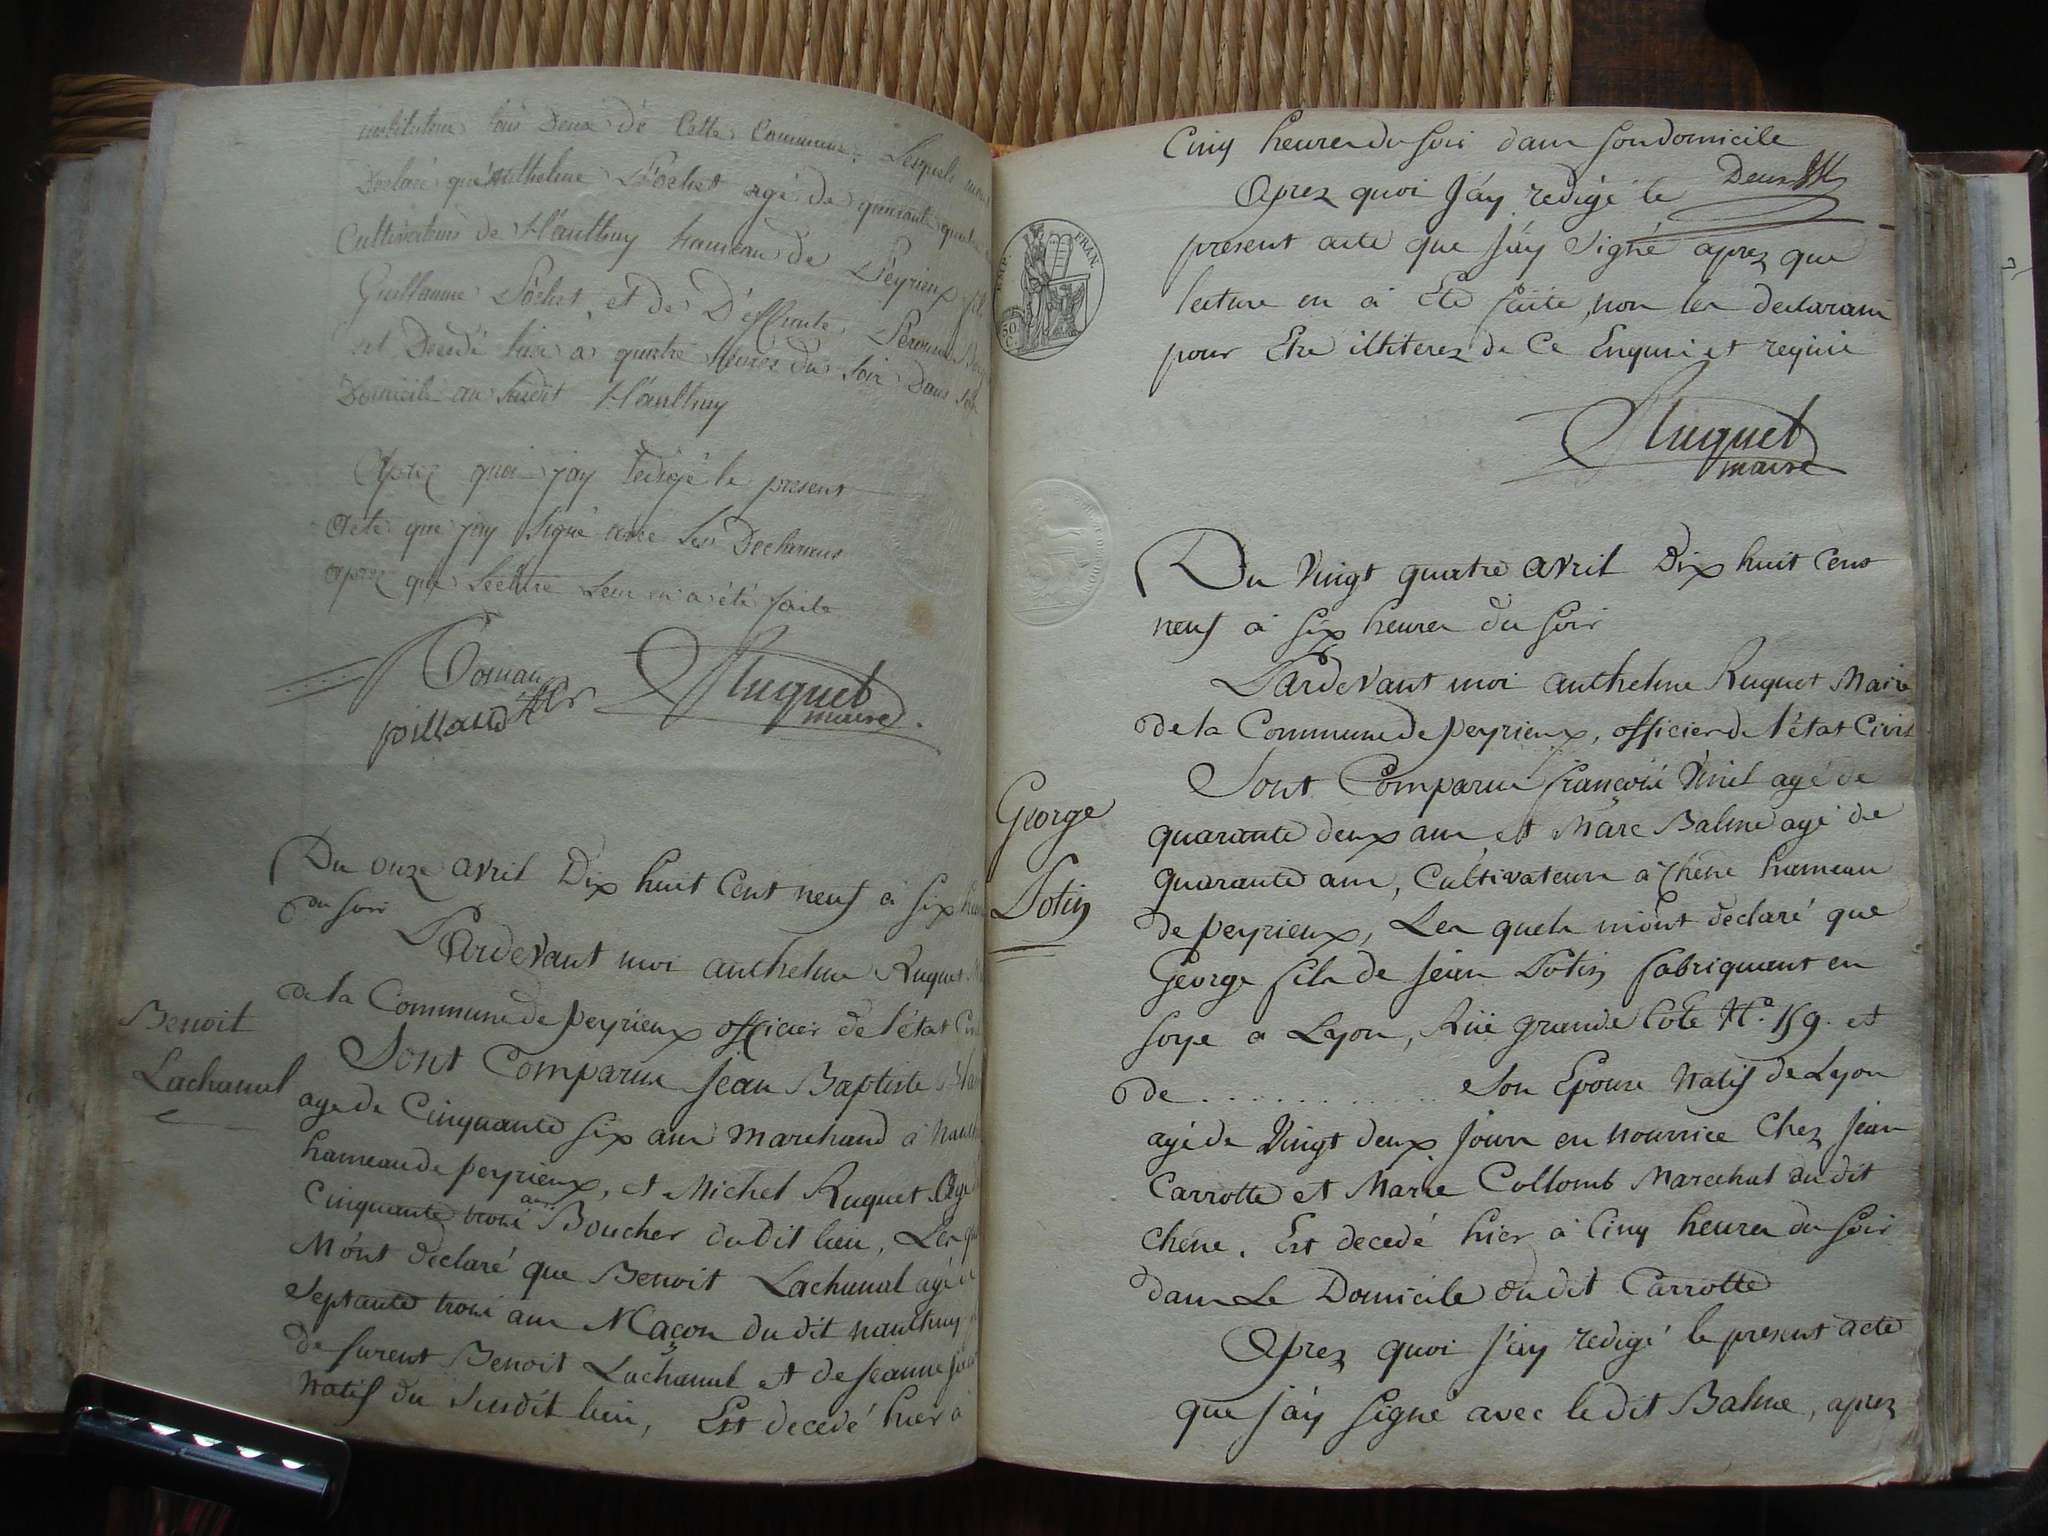 tous Deux de Cette Commune, Lesquels
Declaré que Anthelme Pochet agé de quarante quatre
Cultivateur de Nanthuy hameau de Peyrieux
Guillaume Pochet, et de
est Decedé hier a quatre heures du soir Dans son
Domicile au susdit Nanthuy
Aprez quoi jay redigé le present
Acte que jay signé avec les Declarans
aprez que Lecture leur en a été faite
Ruquet
maire
Du onze avril Dix huit Cent neuf à six
du soir
Pardevant moi anthelme Ruquet
de la Commune de peyrieux officier de l'état
Benoit
Sont Comparus Jean Baptiste
Lachanal
agé de Cinquante six ans marchand à
hameau de peyrieux, et Michel Ruquet agé
Cinquante trois ans Boucher du dit lieu, Les
M'ont declaré que Benoit Lachanal agé
Septante trois ans Maçon du dit nanthuy
de furent Benoit Lachanal et de Jeanne
natif du Susdit lieu, Est decedé hier à
Cinq heures du soir dans son domicile
Aprez quoi J'ay redigé le
present acte que J'ay signé aprez que
lecture en a Eté faite, non les declarans
pour Etre illiterez de Ce Enquis et requis
EMP. FRAN.
50 C.
Ruquet
maire
Du Vingt quatre avril Dix huit Cent
neuf à six heures du soir
Pardevant moi anthelme Ruquet Maire
de la Commune de peyrieux, officier de l'état Civil
Sont Comparus françois Vinil agé de
George
quarante deux ans et Marc Balme agé de
quarante ans, Cultivateurs à Chêne hameau
Potin
de peyrieux, Les quels m'ont declaré que
George fils de Jean Potin fabriquant en
soye a Lyon, Rüe grande Cote N.º 159. et
de . . . . . . . . . . . . Son Epouse natif de Lyon
agé de Vingt deux Jours en nourrice Chez Jean
Carrotte et Marie Collomb Marechal du dit
Chêne. Est decedé hier à Cinq heures du soir
dans Le Domicile du dit Carrotte
Aprez quoi J'ay redigé le present acte
que J'ay signé avec le dit Balme, aprez